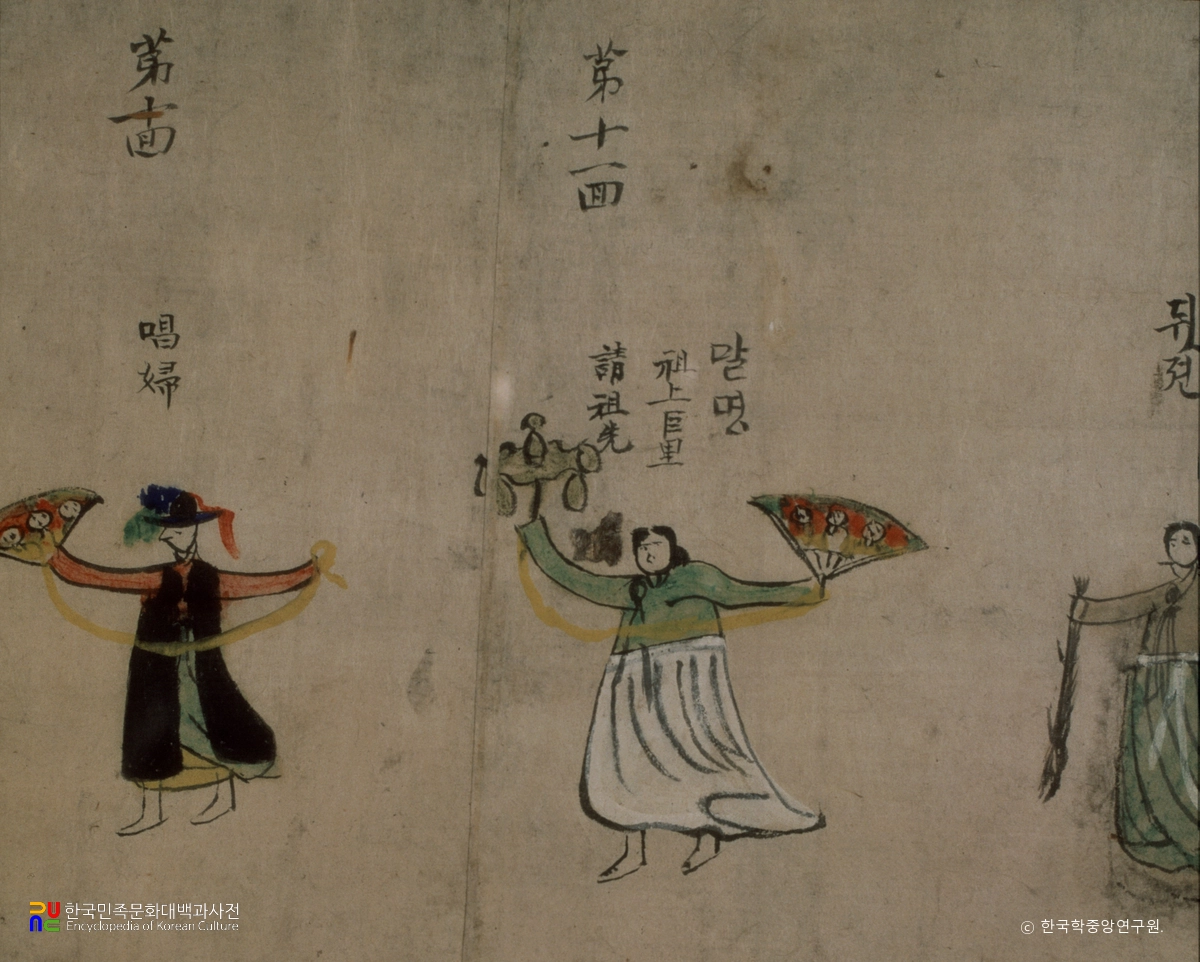 苐十囬
唱婦
苐十一囬
말명
祖上巨里
請祖先
뒤젼
한국민족문화대백과사전
Encyclopedia of Korean Culture
ⓒ 한국학중앙연구원.